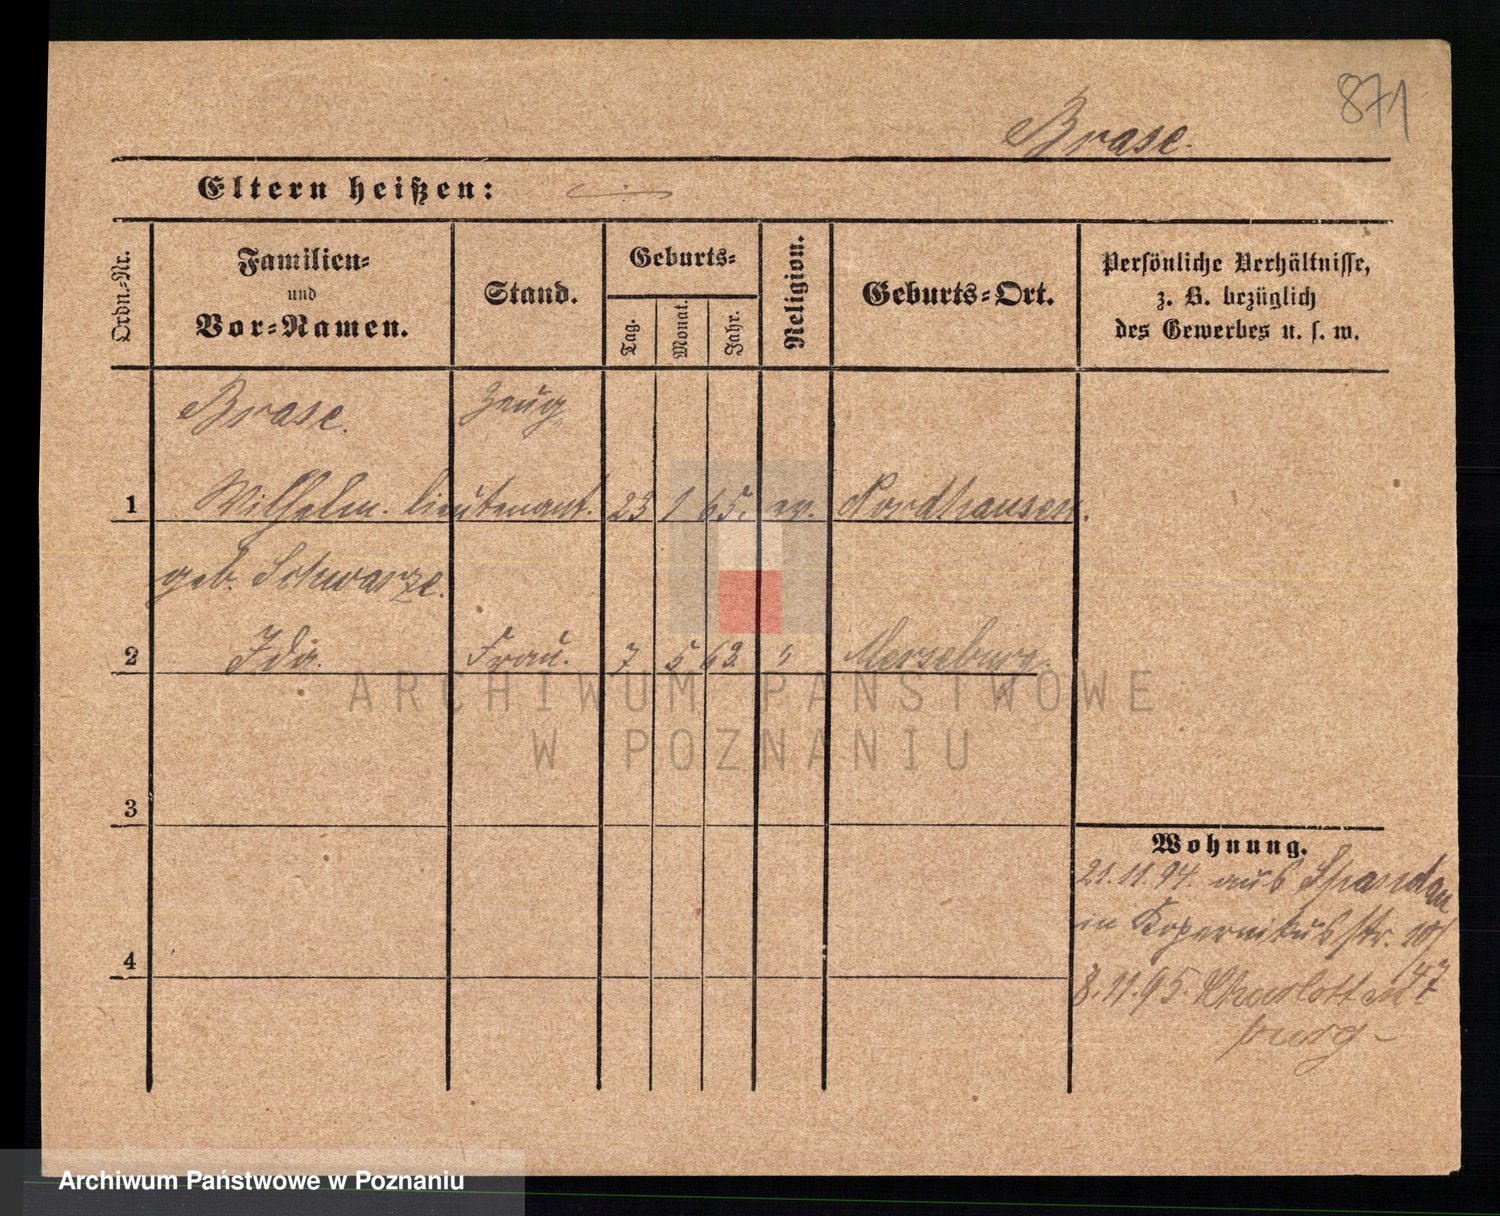 871
Brase.
Eltern heißen:
Ordn.-Nr.
Familien-
und
Vor-Namen.
Stand.
Geburts-
Tag.
Monat.
Jahr.
Religion.
Geburts-Ort.
Persönliche Verhältnisse,
z. B. bezüglich
des Gewerbes u. s. w.
Brase. Zeug
1 Wilhelm. lieutenant. 23 1 65. ev. Nordhausen.
geb. Schwarze.
2 Ida. Frau. 7 5 62. " Merseburg.
ARCHIWUM PAŃSTWOWE
W POZNANIU
3
Wohnung.
21.11.94. aus Spandau
in Kopernikusstr. 10/
4
47
8.11.95. Charlotten-
burg-
Archiwum Państwowe w Poznaniu